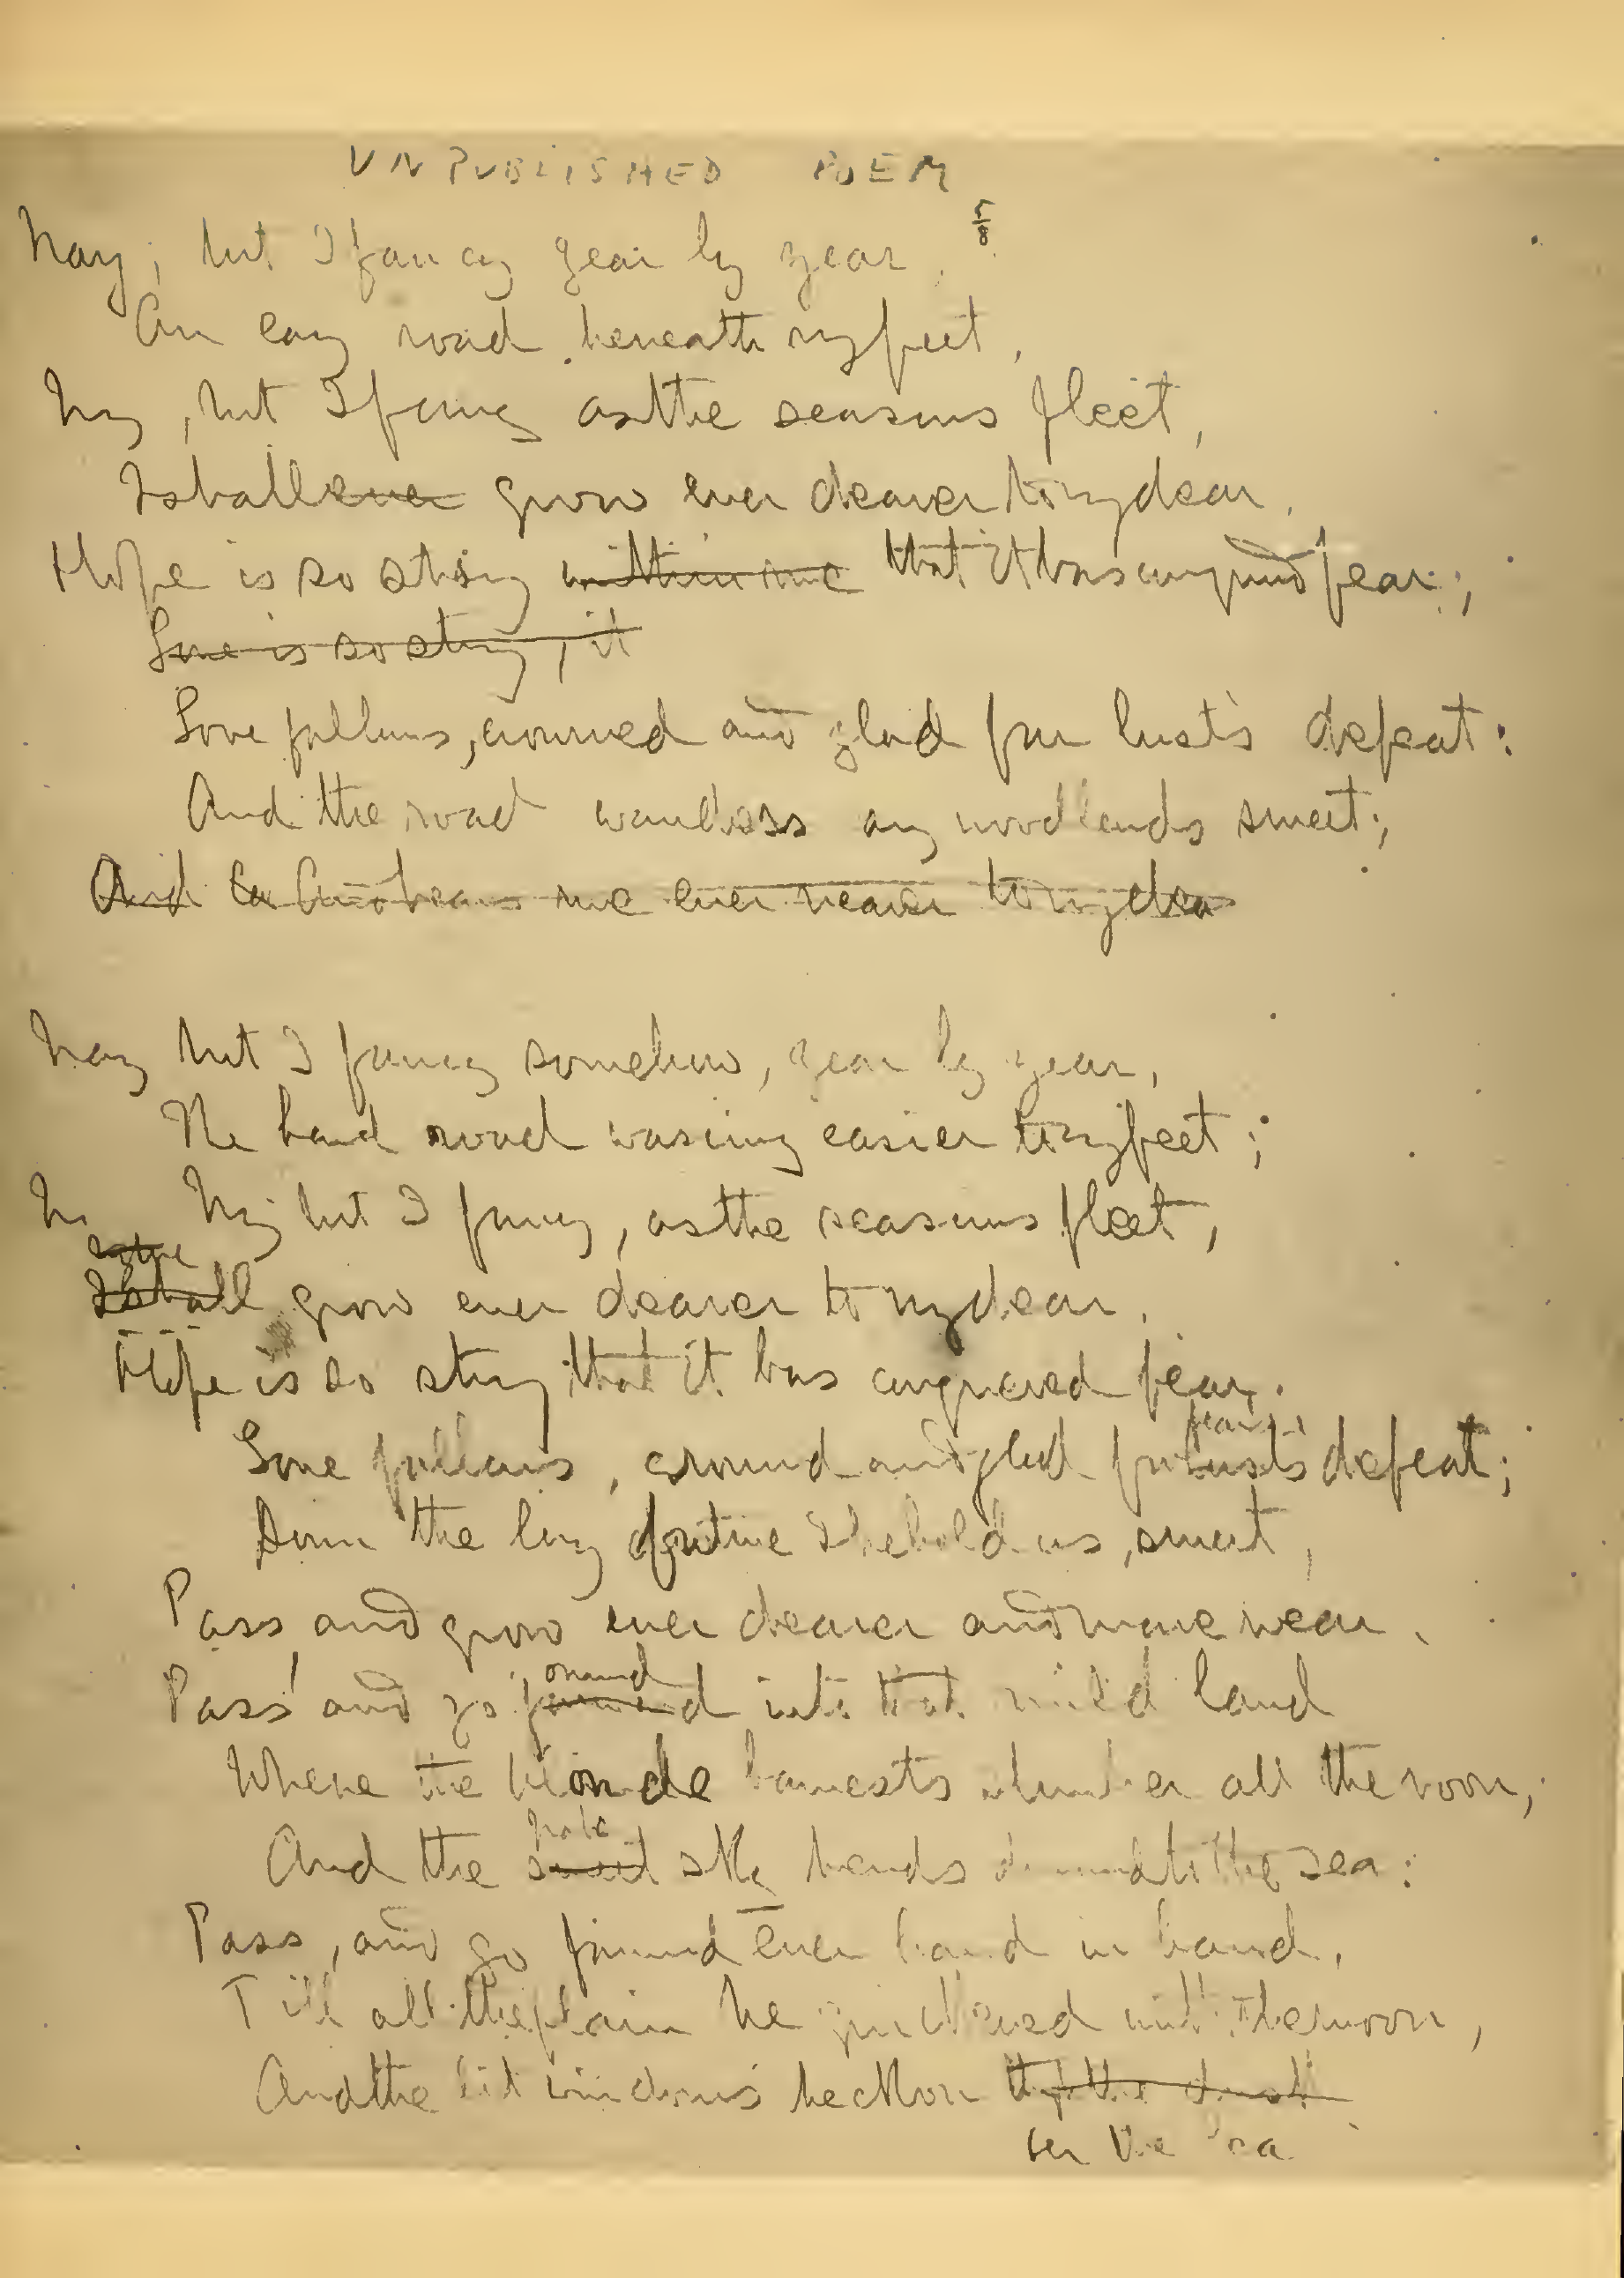 UNPUBLISHED POEM
5/8
Nay, but I fancy year by year,
An easy road beneath my feet,
Nay, but I fancy as the seasons fleet,
I shall ever grow ever dearer to my dear.
Hope is so strong within me that it has conquered fear;
Love is so strong, it
Love follows, crowned and glad for lust's defeat:
And the road wanders by woodlands sweet;
And me ever nearer to my dear
Nay but I fancy somehow, year by year,
The hard road waxing easier to my feet;
Nay but I fancy, as the seasons fleet,
I shall grow ever dearer to my dear.
Hope is so strong that it has conquered fear.
fear's
Love follows, crowned and glad for lust's defeat;
Down the long future I behold us, sweet,
Pass, and grow ever dearer and more near.
onward
Pass and go forward into that mild land
Where the blonde harvests slumber all the noon,
pale
And the sweet sky bends downward to the sea:
Pass, and go forward ever hand in hand,
Till all the plain be quickened with the moon,
And the lit windows beckon thro' the dusk
o'er the lea